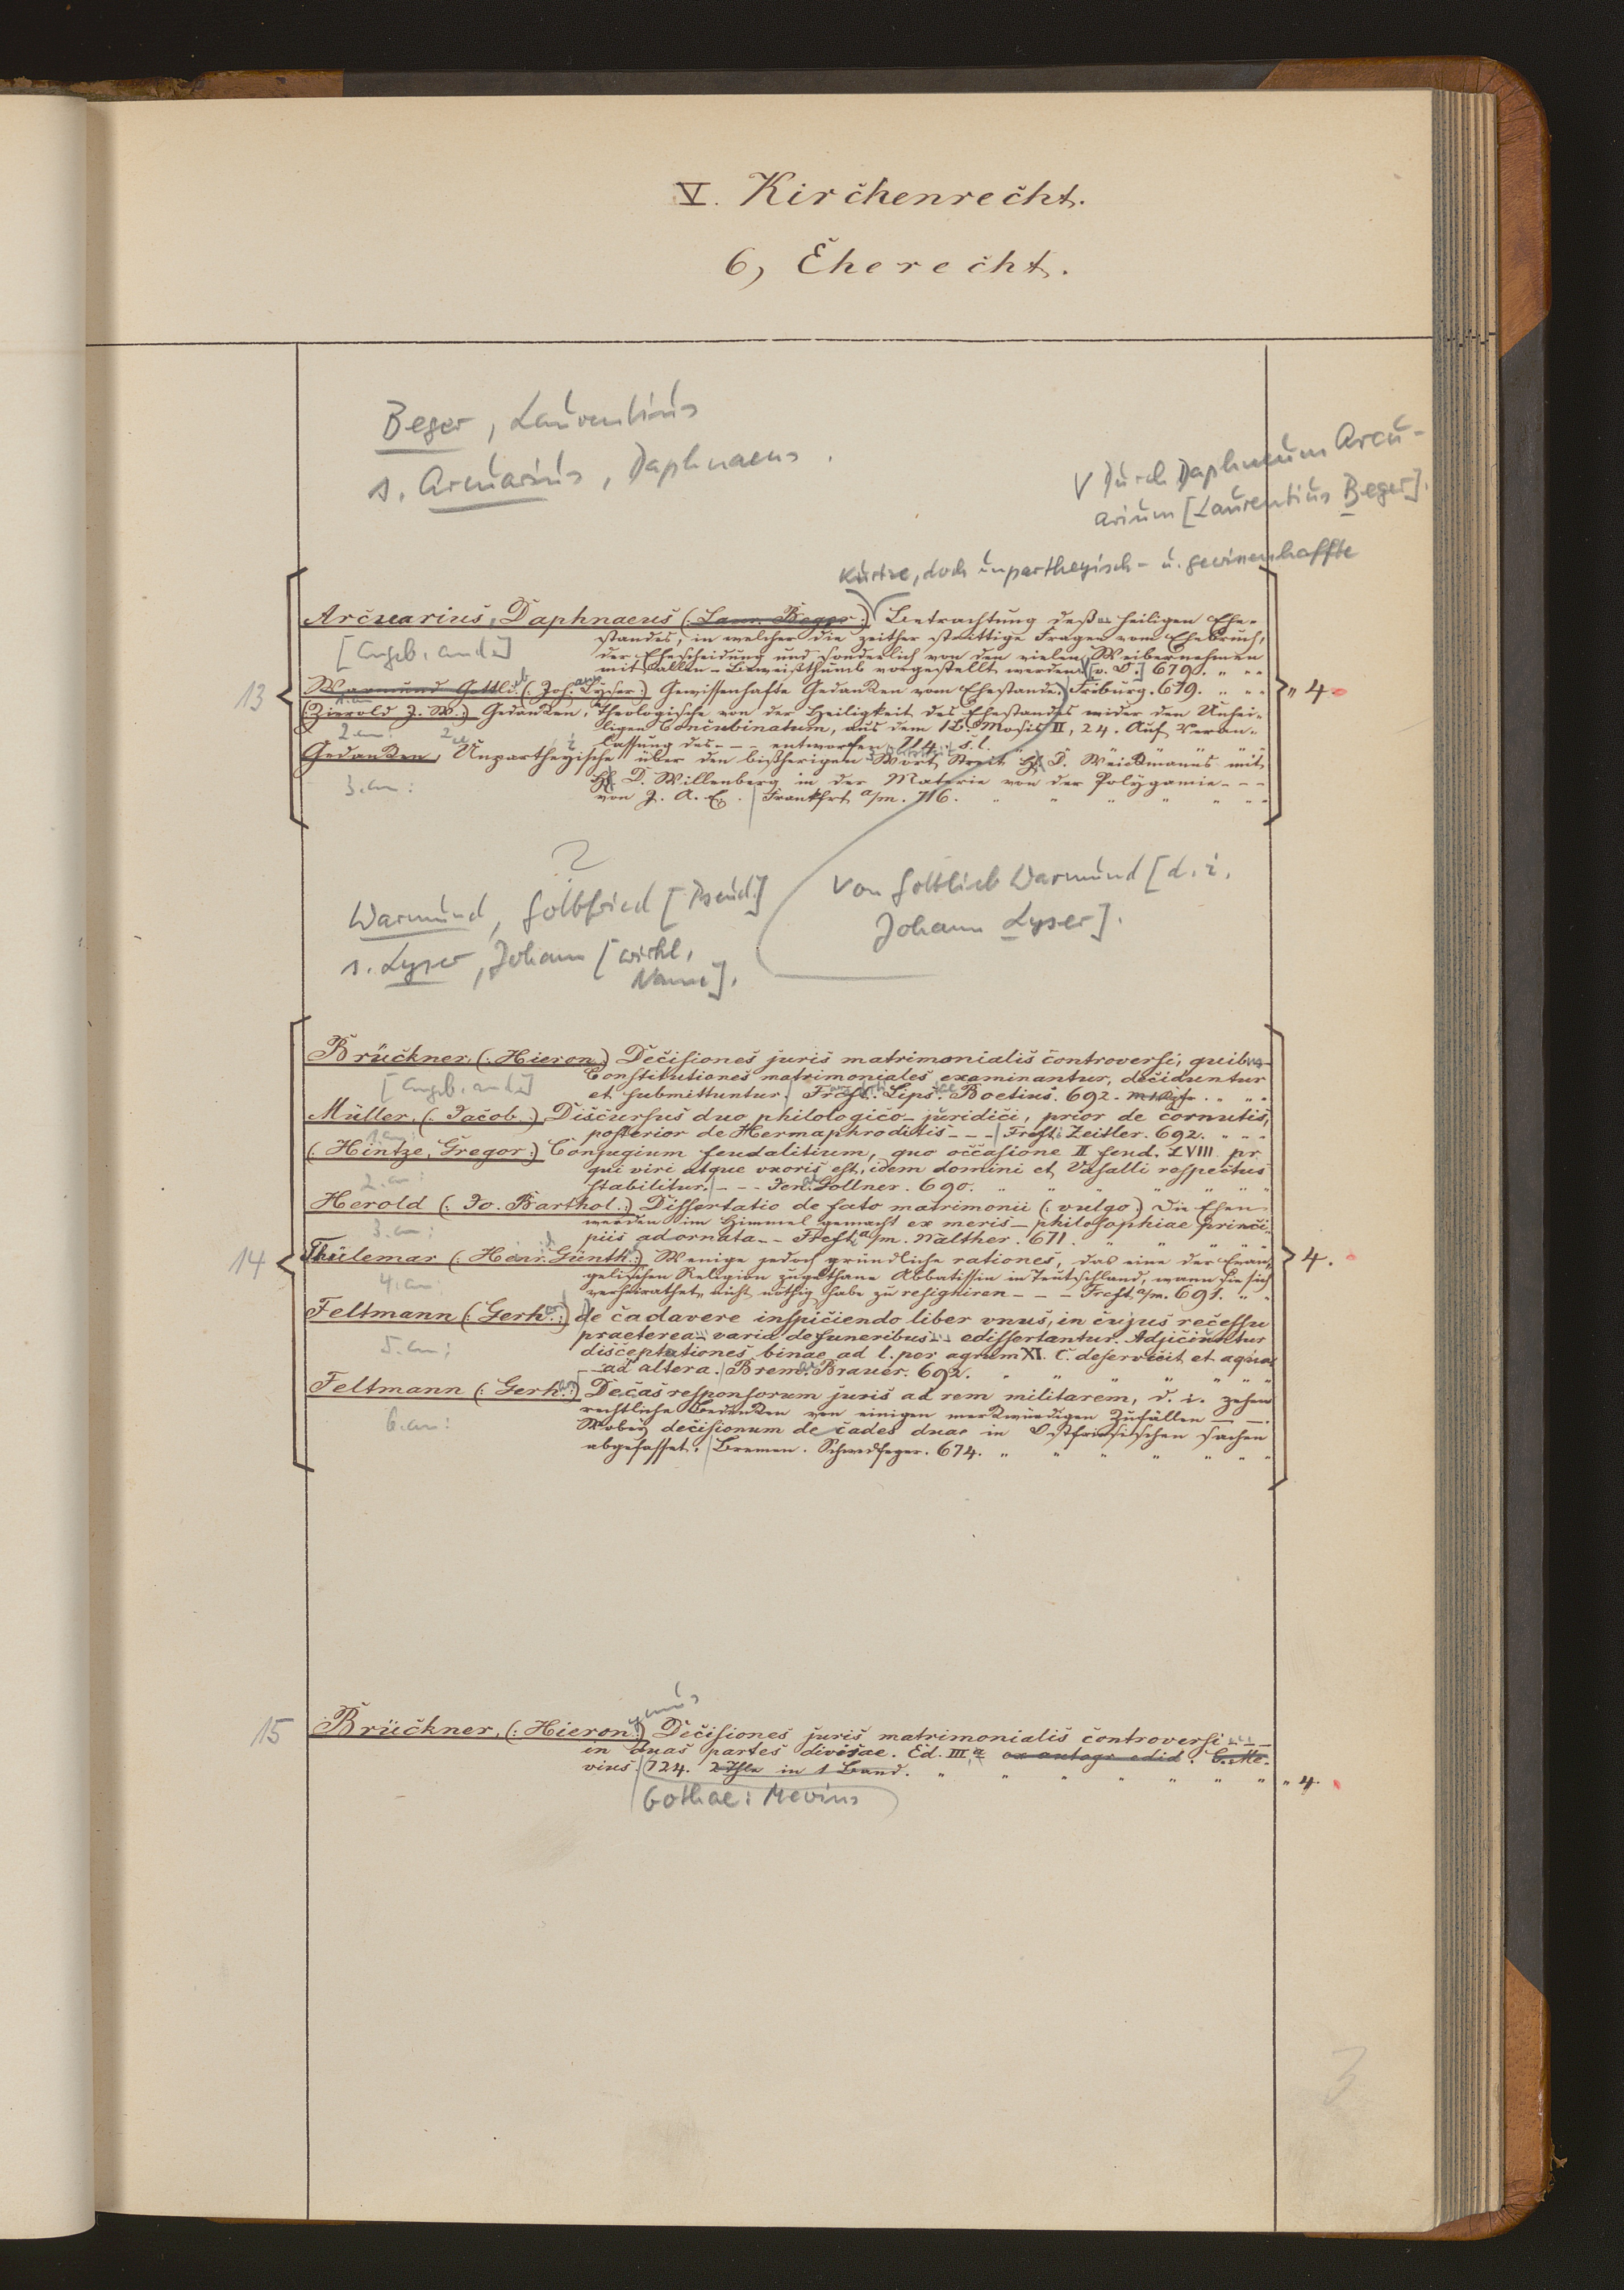 V. Kirchenrecht.
6, Eherecht.
Beger, Laurentius
s. Arcuarius, Daphnaeus.
V Durch Daphnaeum Arcu-
arium [Laurentius Beger].
Kurtze, doch unpartheyisch- u. gewissenhaffte
Arcuarius, Daphnaeus (: Laur. Beger :) Betrachtung deß heiligen Ehe-
[Angeb. and.] standes, in welcher die zeither strittige Fragen vom Ehebruch,
der Ehescheidung und sonderlich von dem vielen Weibernehmen
mit allen Beweißthumb vorgestellt werden. [o. O.] 679. " " "
13 Warmund Gottlieb (: Joh. Lyser :) Gewissenhafte Gedanken vom Ehestande. Friburg. 679. " " " " 4.
1. an:
(Zierold J. W.:) Gedanken, Theologische von der Heiligkeit des Ehestandes wider den Unhei-
2. an: ligen Concubinatum, aus dem 1 B. Mosis II, 24. Auf Veran-
lassung des - - - entworfen. 714. s. l.
Gedanken, Unpartheyische über den bißherigen Wort Streit H. D. Weickmanns mit
3. an: H. D. Willenberg in der Materie von der Polygamie - - -
von J. A. E. Frankfrt a/m. 716. " " " " " " "
?
Warmund, Gottfried [Pseud.]
s. Lyser, Johann [wirkl.
Name].
Von Gottlieb Warmund [d. i.
Johann Lyser].
Brückner, (: Hieron :) Decisiones juris matrimonialis controversi, quibus
[Angeb. and.] Constitutiones matrimoniales examinantur, deciduntur
et submittuntur. Frcft. Lips. Boetius. 692. " " "
Müller, (: Jacob :) Discursus duo philologico-juridici, prior de cornutis,
1. an: posterior de Hermaphroditis - - - Frcft: Zeitler. 692. " " "
(: Hintze, Gregor :) Conjugium feudalitium, quo occasione II feud. LVIII. pr.
2. an: qui viri atque uxoris est, idem domini et Vasalli respectus
stabilitur. - - - Jen. Gollner. 690. " " " " " " "
Herold (: Jo. Barthol. :) Dissertatio de fato matrimonii (: vulgo :) Die Ehen
3. an: werden im Himmel gemacht ex meris philosophiae princi-
piis adornata - - Frcft. a/m. Walther. 671. " " " " "
14 Thülemar (: Henr. Günth. :) Wenige jedoch gründliche rationes, das eine der Evan- 4.
4. an: gelischen Religion zugethane Abbatissin in Teutschland, wann sie sich
verheirathet, nicht nöthig habe zu resigniren - - - Frcft a/m. 691. " "
Feltmann (: Gerh. :) de cadavere inspiciendo liber unus, in cujus recessu
praeterea varia de funeribus edissertantur. Adjiciuntur
5. an: disceptationes binae ad l. per agrum XI. C. de servicit et aqua
- ad altera. Brem. Brauer. 692. " " " " " " "
Feltmann (: Gerh. :) Decas responsorum juris ad rem militarem, d. i. zehen
rechtliche Bedenken von einigen merkwürdigen Zufällen - - -.
6. an: Wobey decisionum decades duae in Ostfriesischen Sachen
abgefasset. Bremen. Schwerdfeger. 674. " " " " " " "
15 Brückner, (: Hieronymus :) Decisiones juris matrimonialis controversi -
in duas partes divisae. Ed. III a ex autogr. edid. C. Me-
vius. 724. 2 Thle in 1 Band. " " " " " " " " 4.
Gothae: Mevius
3